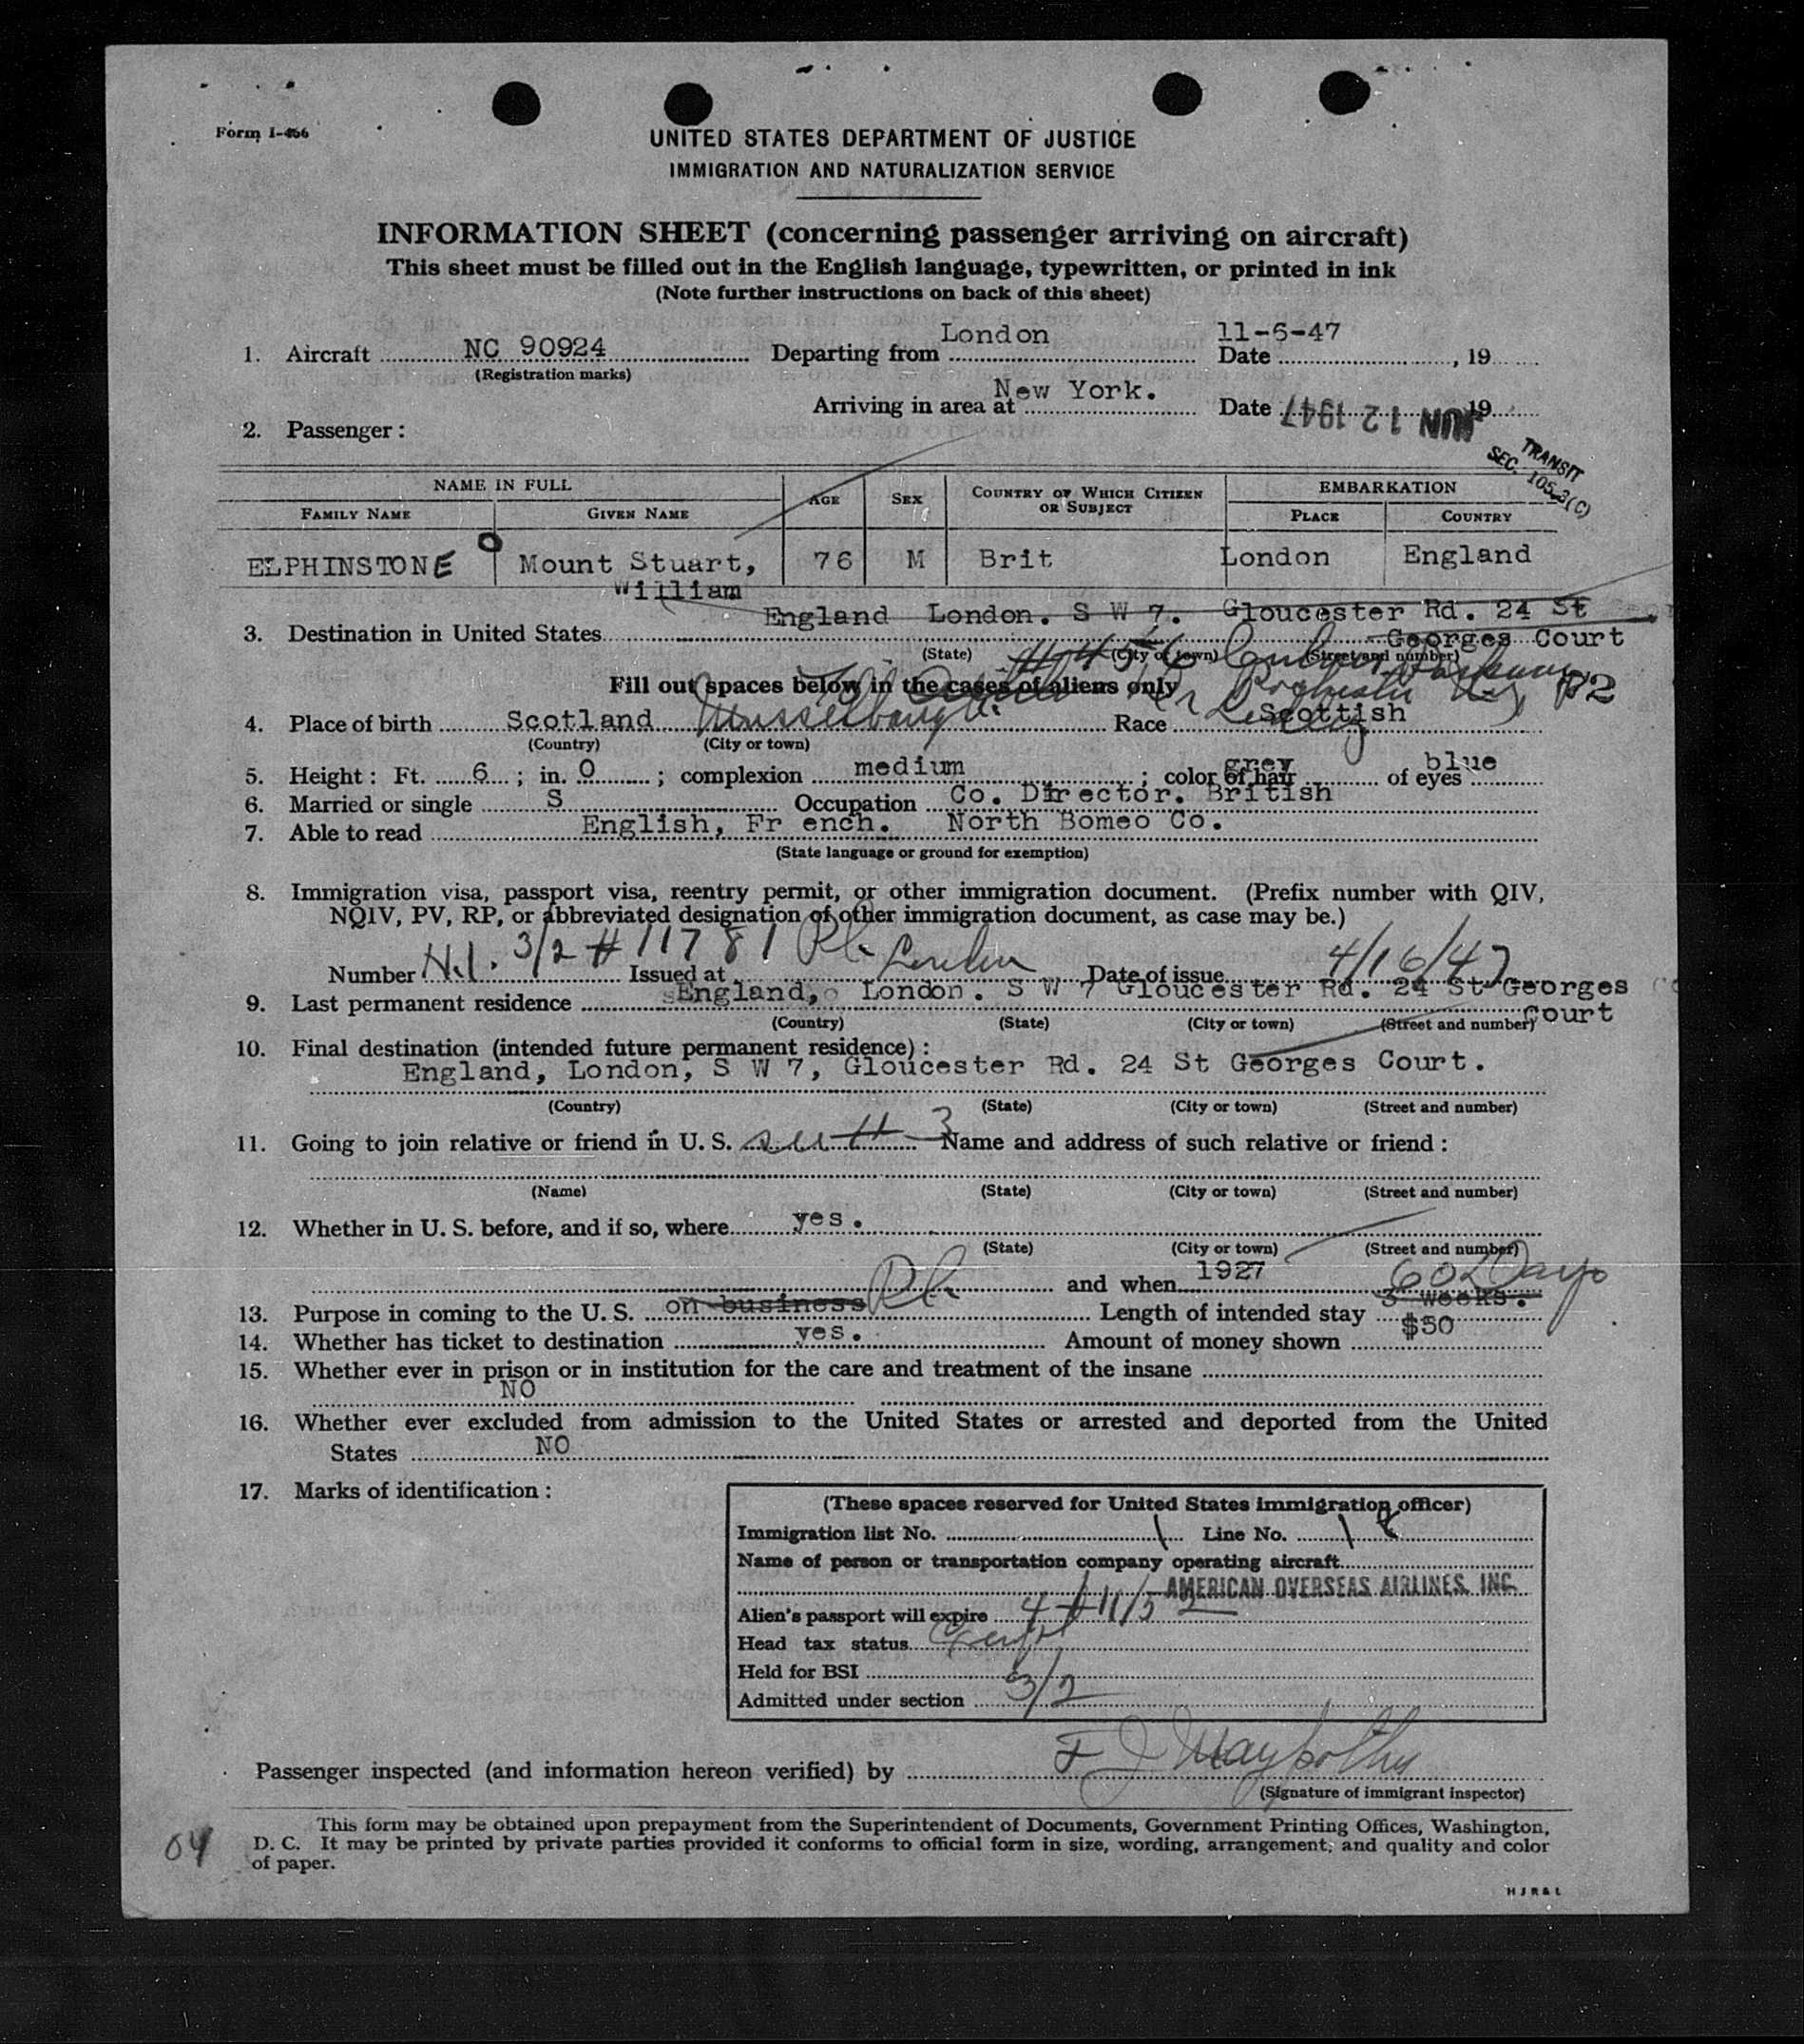 Form I-466
UNITED STATES DEPARTMENT OF JUSTICE
IMMIGRATION AND NATURALIZATION SERVICE
INFORMATION SHEET (concerning passenger arriving on aircraft)
This sheet must be filled out in the English language, typewritten, or printed in ink
(Note further instructions on back of this sheet)
1. Aircraft NC 90924 Departing from London Date 11-6-47, 19
(Registration marks)
Arriving in area at New York. Date JUN 12 1947 19
2. Passenger:
TRANSIT
SEC. 105.3(C)
NAME IN FULL AGE SEX COUNTRY OF WHICH CITIZEN OR SUBJECT EMBARKATION
FAMILY NAME GIVEN NAME PLACE COUNTRY
ELPHINSTONE Mount Stuart, William 76 M Brit London England
England London. S W 7. Gloucester Rd. 24 St
3. Destination in United States Georges Court
(State) (City or town) (Street and number)
Fill out spaces below in the cases of aliens only
4. Place of birth Scotland Musselburgh Race Scottish
(Country) (City or town)
5. Height: Ft. 6; in. 0; complexion medium; color of hair grey of eyes blue
6. Married or single S Occupation Co. Director. British
7. Able to read English, Fr ench. North Bomeo Co.
(State language or ground for exemption)
8. Immigration visa, passport visa, reentry permit, or other immigration document. (Prefix number with QIV,
NQIV, PV, RP, or abbreviated designation of other immigration document, as case may be.)
Number 3/2 # 11781 Issued at London Date of issue 4/16/47
9. Last permanent residence England, London. S W 7 Gloucester Rd. 24 St Georges
Court
(Country) (State) (City or town) (Street and number)
10. Final destination (intended future permanent residence):
England, London, S W 7, Gloucester Rd. 24 St Georges Court.
(Country) (State) (City or town) (Street and number)
11. Going to join relative or friend in U. S. see # 3 Name and address of such relative or friend:
(Name) (State) (City or town) (Street and number)
12. Whether in U. S. before, and if so, where yes.
(State) (City or town) (Street and number)
and when 1927 60 Days
13. Purpose in coming to the U. S. on business Length of intended stay 3 weeks.
14. Whether has ticket to destination yes. Amount of money shown $50
15. Whether ever in prison or in institution for the care and treatment of the insane
NO
16. Whether ever excluded from admission to the United States or arrested and deported from the United
States NO
17. Marks of identification:
(These spaces reserved for United States immigration officer)
Immigration list No. 1 Line No. 1
Name of person or transportation company operating aircraft
AMERICAN OVERSEAS AIRLINES, INC.
Alien's passport will expire
Head tax status
Held for BSI
Admitted under section 3/2
Passenger inspected (and information hereon verified) by
(Signature of immigrant inspector)
This form may be obtained upon prepayment from the Superintendent of Documents, Government Printing Offices, Washington,
D. C. It may be printed by private parties provided it conforms to official form in size, wording, arrangement, and quality and color
of paper.
04
H J R & L